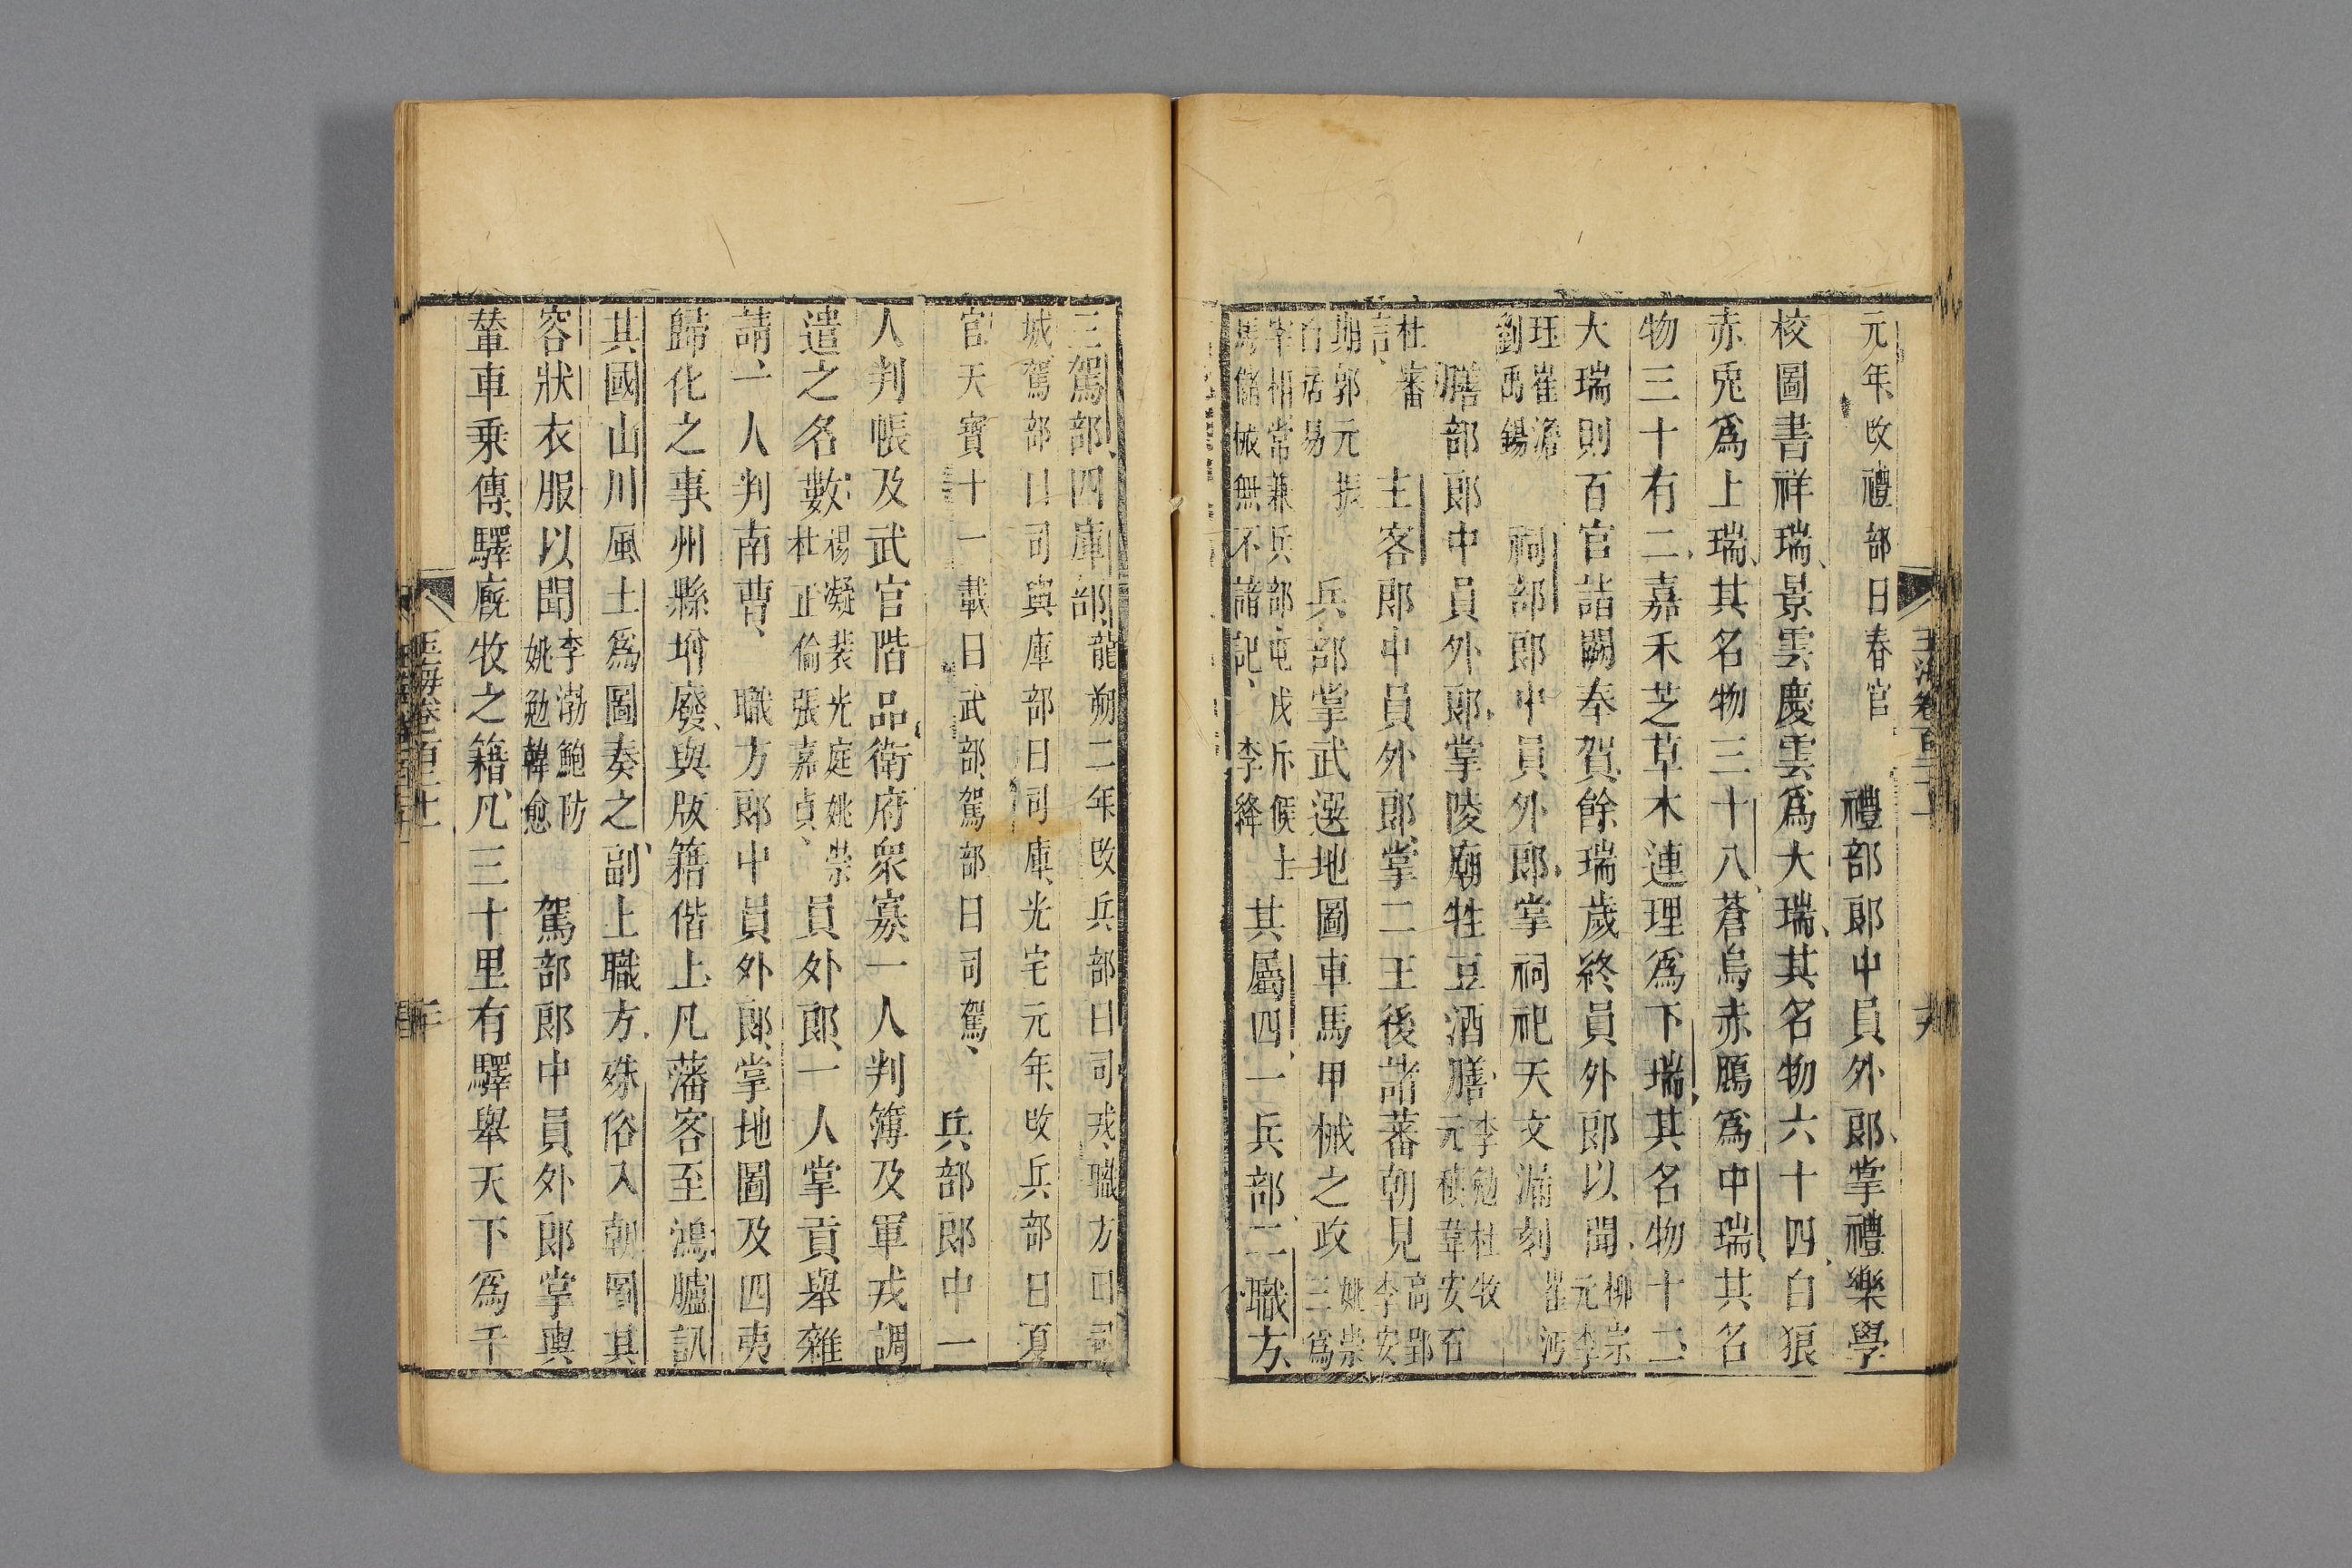 元年改禮部曰春官　禮部郎中員外郎、掌禮樂學
校圖書祥瑞、景雲慶雲爲大瑞、其名物六十四、白狼
赤兎爲上瑞、其名物三十八、蒼烏赤鴈爲中瑞、其名
物三十有二、嘉禾芝草木連理爲下瑞、其名物十二
大瑞則百官詣闕奉賀、餘瑞歲終員外郎以聞、柳宗元李
珏崔澹劉禹錫　祠部郎中員外郎、掌祠祀天文漏刻崔沔
膳部郎中員外郎、掌陵廟牲豆酒膳、李勉杜牧元稹韋安石
杜審言、主客郎中員外郎、掌二王後諸蕃朝見高郢李安
期郭元振白居易　兵部掌武選地圖車馬甲械之政姚崇三爲
宰相常兼兵部屯戍斥候士馬儲械無不諳記、李絳　其屬四、一兵部、二職方、
三駕部、四庫部、龍朔二年改兵部曰司戎、職方曰司
城、駕部曰司輿、庫部曰司庫、光宅元年、改兵部曰夏
官、天寶十一載曰武部、駕部曰司駕、兵部郎中一
人判帳及武官階品、衛府衆寡、一人判簿及軍戎調
遣之名數、楊凝裴光庭姚崇杜正倫張嘉貞、員外郎、一人掌貢舉雜
請、一人判南曹、職方郎中員外郎、掌地圖及四夷
歸化之事、州縣增廢、與版籍偕上、凡藩客至、鴻臚訊
其國山川風土、爲圖奏之、副上職方、殊俗入朝、圖其
容狀衣服以聞李渤鮑防姚勉韓愈　駕部郎中員外郎掌輿
輦車乗傳、驛廐牧之籍、凡三十里有驛、舉天下爲千